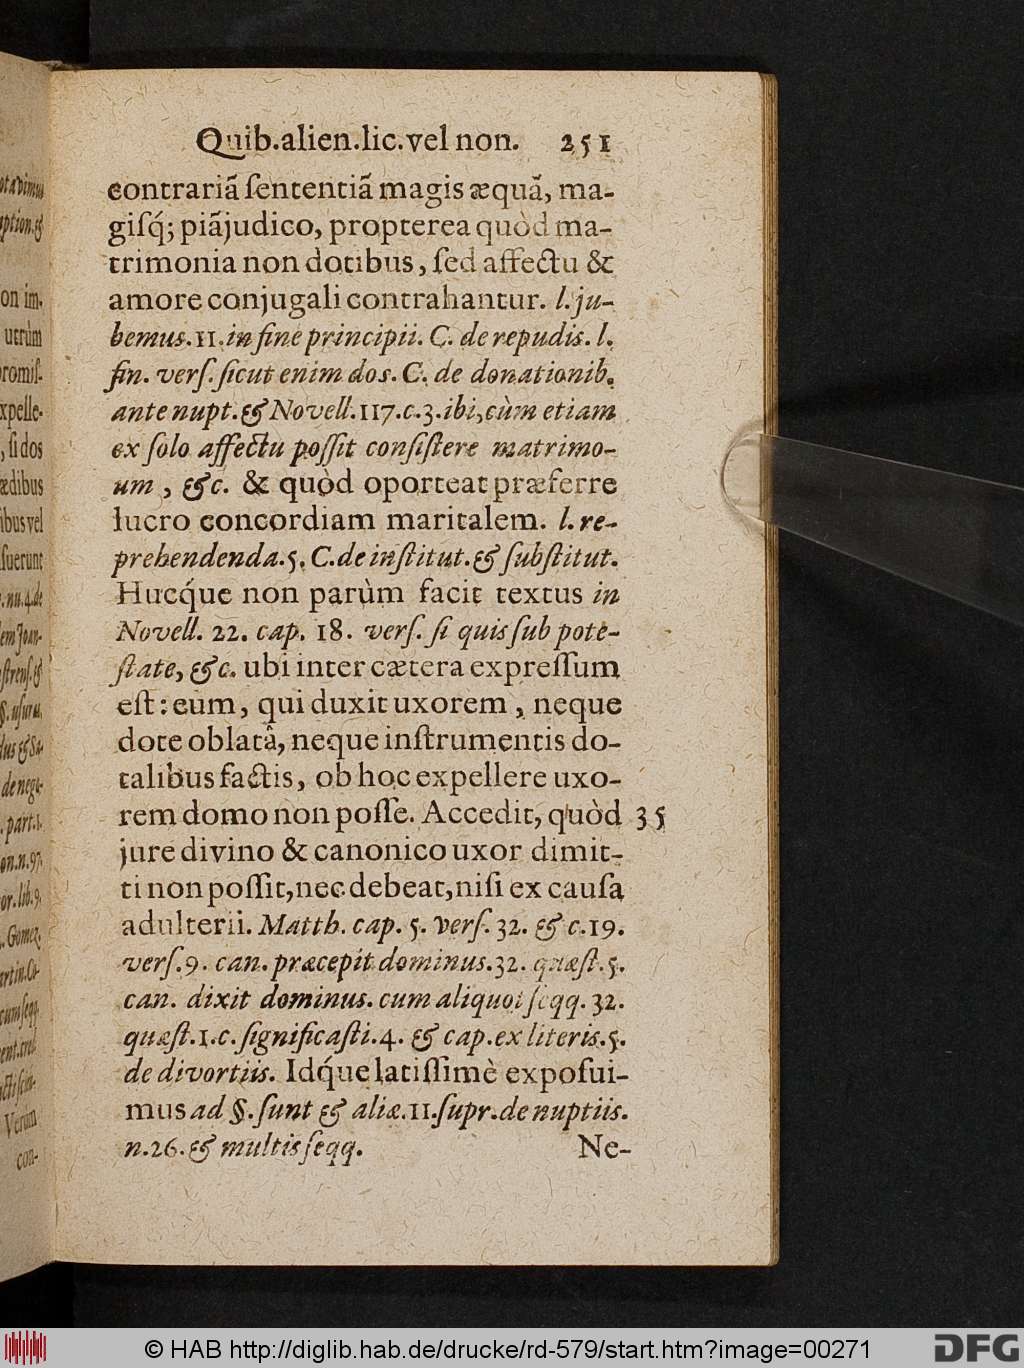 Quib.alien.lic.vel non. 251
contrariã ſententiã magis æquã, ma-
giſq́; piã judico, propterea quòd ma-
trimonia non dotibus, ſed affectu &
amore conjugali contrahantur. l. ju-
bemus.11.in fine principii. C. de repudis. l.
fin. verſ. ſicut enim dos. C. de donationib.
ante nupt. & Novell.117.c.3.ibi,cùm etiam
ex ſolo affectu poſſit conſiſtere matrimo-
um, &c. & quòd oporteat præferre
lucro concordiam maritalem. l. re-
prehendenda.5. C.de inſtitut. & ſubſtitut.
Hucq́ue non parùm facit textus in
Novell. 22. cap. 18. verſ. ſi quis ſub pote-
ſtate, &c. ubi inter cætera expreſſum
eſt: eum, qui duxit uxorem, neque
dote oblatâ, neque inſtrumentis do-
talibus factis, ob hoc expellere uxo-
rem domo non poſſe. Accedit, quòd 35
jure divino & canonico uxor dimit-
ti non poſſit, nec debeat, niſi ex cauſa
adulterii. Matth. cap. 5. verſ. 32. & c.19.
verſ.9. can. præcepit dominus.32. quæſt.5.
can. dixit dominus. cum aliquot ſeqq. 32.
quæſt.1.c. ſignificaſti.4. & cap. ex literis.5.
de divortiis. Idq́ue latiſſimè expoſui-
mus ad §. ſunt & aliæ.11.ſupr.de nuptiis.
n.26. & multis ſeqq. Ne-
on im-
utrùm
promiſ-
expelle-
, ſi dos
ædibus
ibus vel
fuerunt
Verùm
con-
© HAB http://diglib.hab.de/drucke/rd-579/start.htm?image=00271
DFG